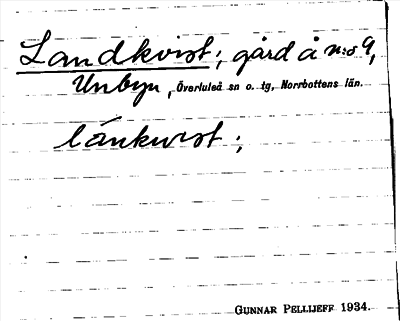 Landkvist; gård å n:o 9,
Unbyn, Överluleå sn o. tg, Norrbottens län.
lánkvıst;
GUNNAR PELLIJEFF 1934.